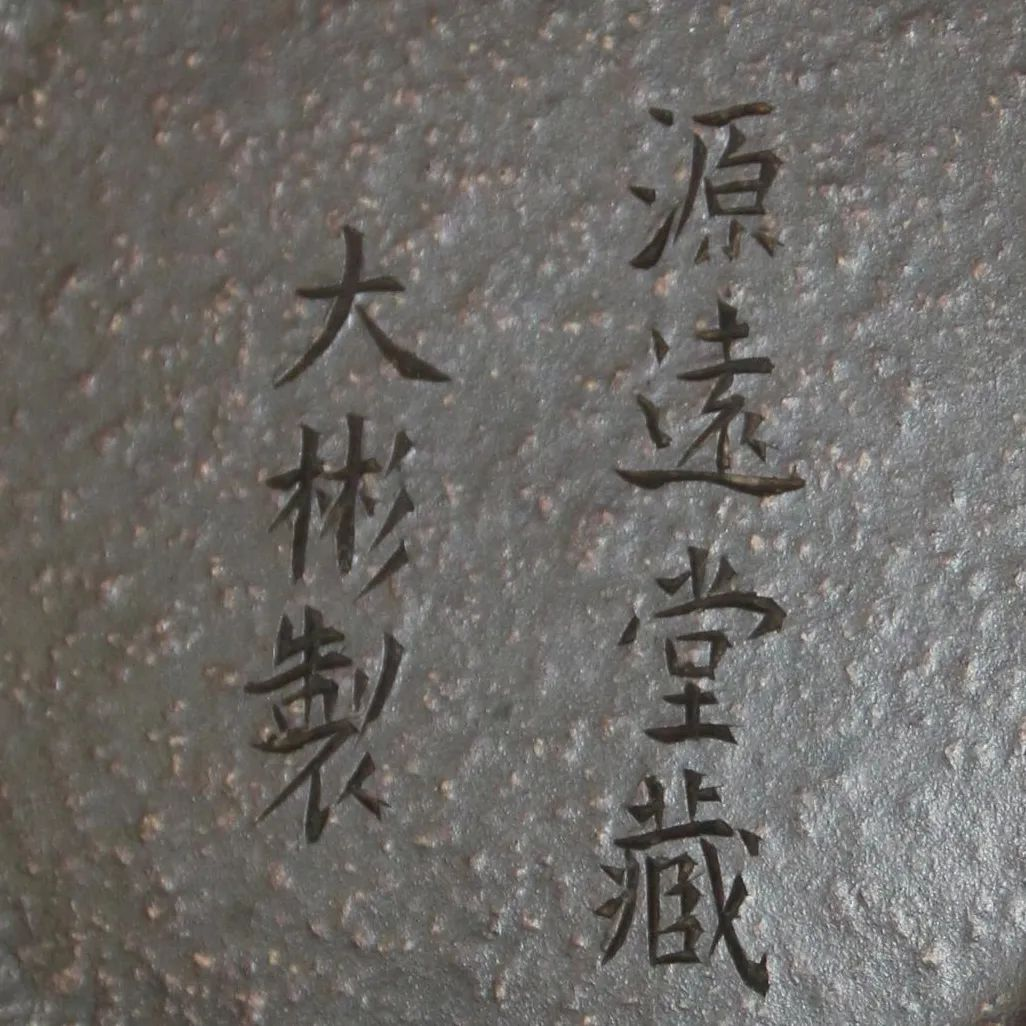 源遠堂藏
大彬製